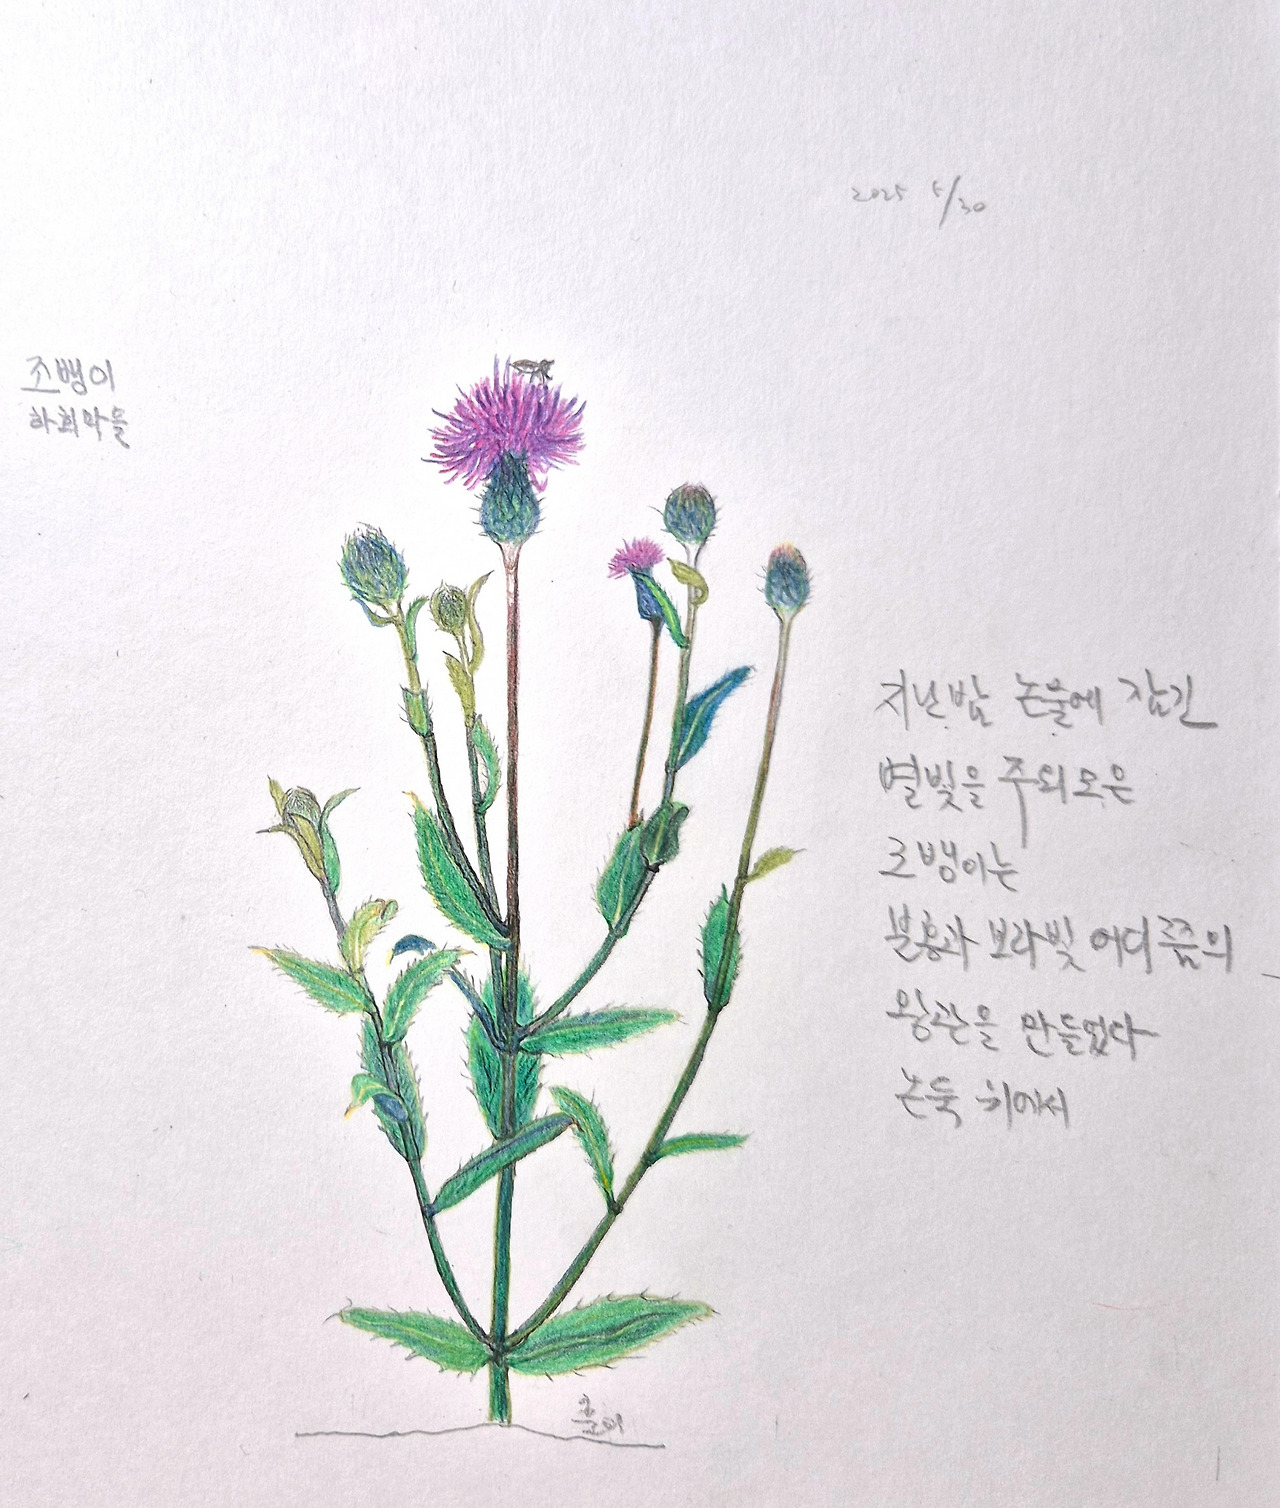 2025 5/30
조뱅이
하회마을
지난밤 논물에 잠긴
별빛을 주워모은
조뱅이는
분홍과 보라빛 어디쯤의
왕관을 만들었다
논둑 위에서